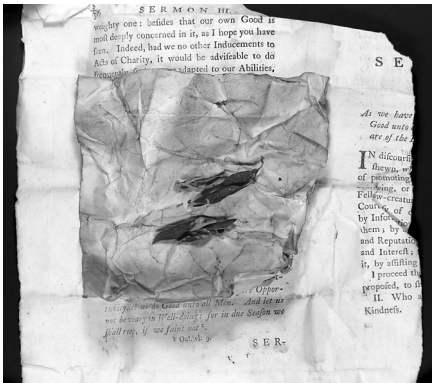 SERMON III.
weighty one: besides that our own Good is
most deeply concerned in it, as I hope you have
seen. Indeed, had we no other Inducements to
Acts of Charity, it would be adviseable to do
adapted to our Abilities,
Oppor-
us do Good unto all Men. And let us
not be weary in Well-doing; for in due Season we
shall reap, if we faint not.
SER-
SE
As we have
Good unto
are of the
IN discours
shewn, w
of promoting
ing, or
Fellow-creatu
of
by Infor
them; by
and Reputatio
and Interest;
it, by assisting
I proceed th
proposed, to
II. Who a
Kindness.